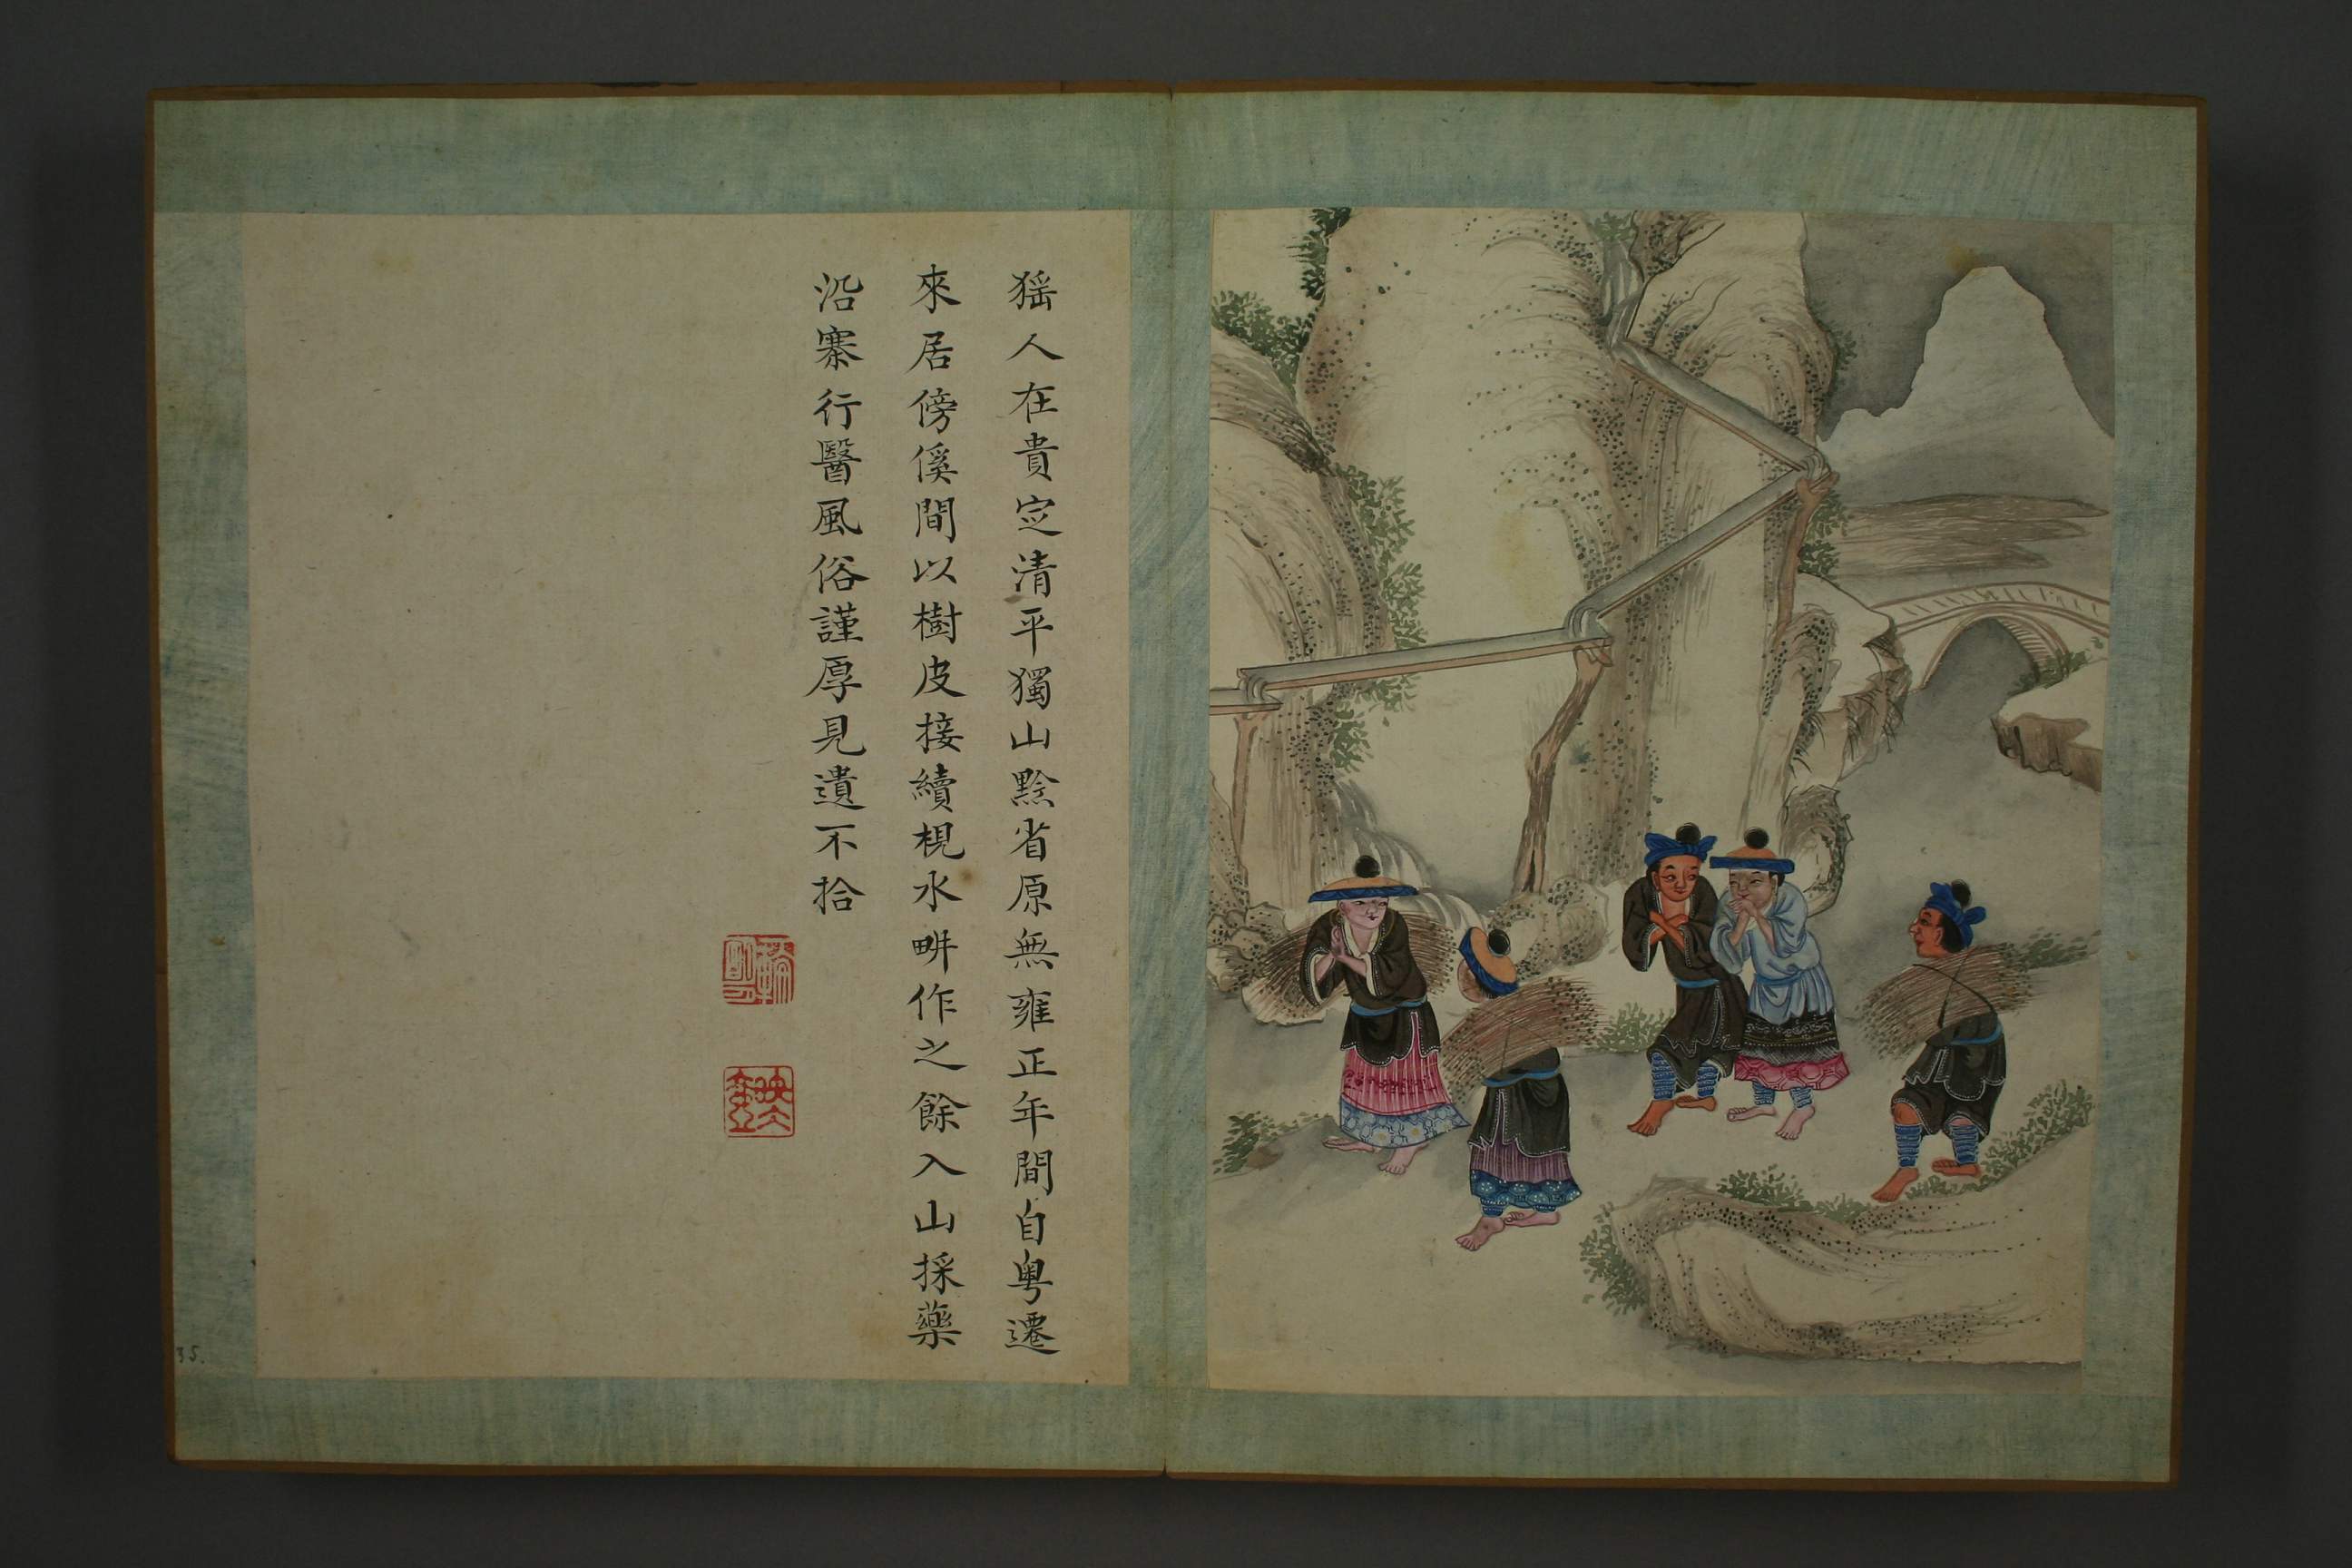 猺人在貴定清平獨山黔省原無雍正年間自粤遷
來居傍傒間以樹皮接續梘水畊作之餘入山採藥
沿寨行醫風俗謹厚見遺不拾
35.